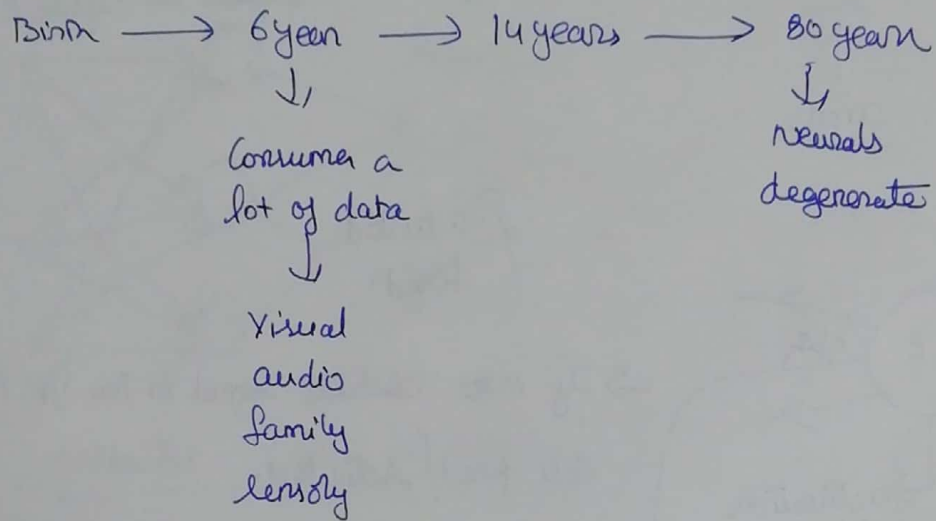 Birth → 6 years → 14 years → 80 years
Consumes a
lot of data
Visual
audio
family
sensory
Neurals
degenerate